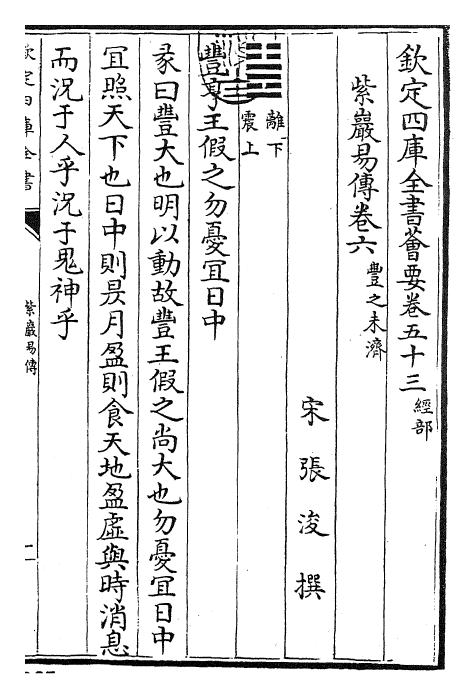 欽定四庫全書薈要卷五十三 經部
紫巖易傳卷六 豐之未濟
宋 張浚 撰
離下
震上
豐亨王假之勿憂宜日中
彖曰豐大也明以動故豐王假之尚大也勿憂宜日中
宜照天下也日中則昃月盈則食天地盈虛與時消息
而況于人乎況于鬼神乎
欽定四庫全書
紫巖易傳
一